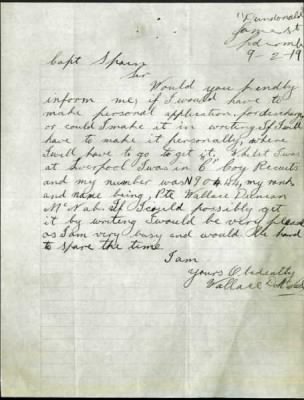 "Dundonald
James St
9-2-19
Capt Spain
Sir
Would you kindly
inform me, if I would have to
make personal application for discharge
or could I make it in writing. If I will
have to make it personally, where
I will have to go to get it. Whilst I was
at Liverpool I was in "C" Coy Recruits
and my number was my rank
and name being, Pte Wallace Duncan
McNab. If I could possibly get
it by writing I would be very pleased
as I am very busy and would be hard
to spare the time.
I am
Yours Obediently
Wallace D. McNab